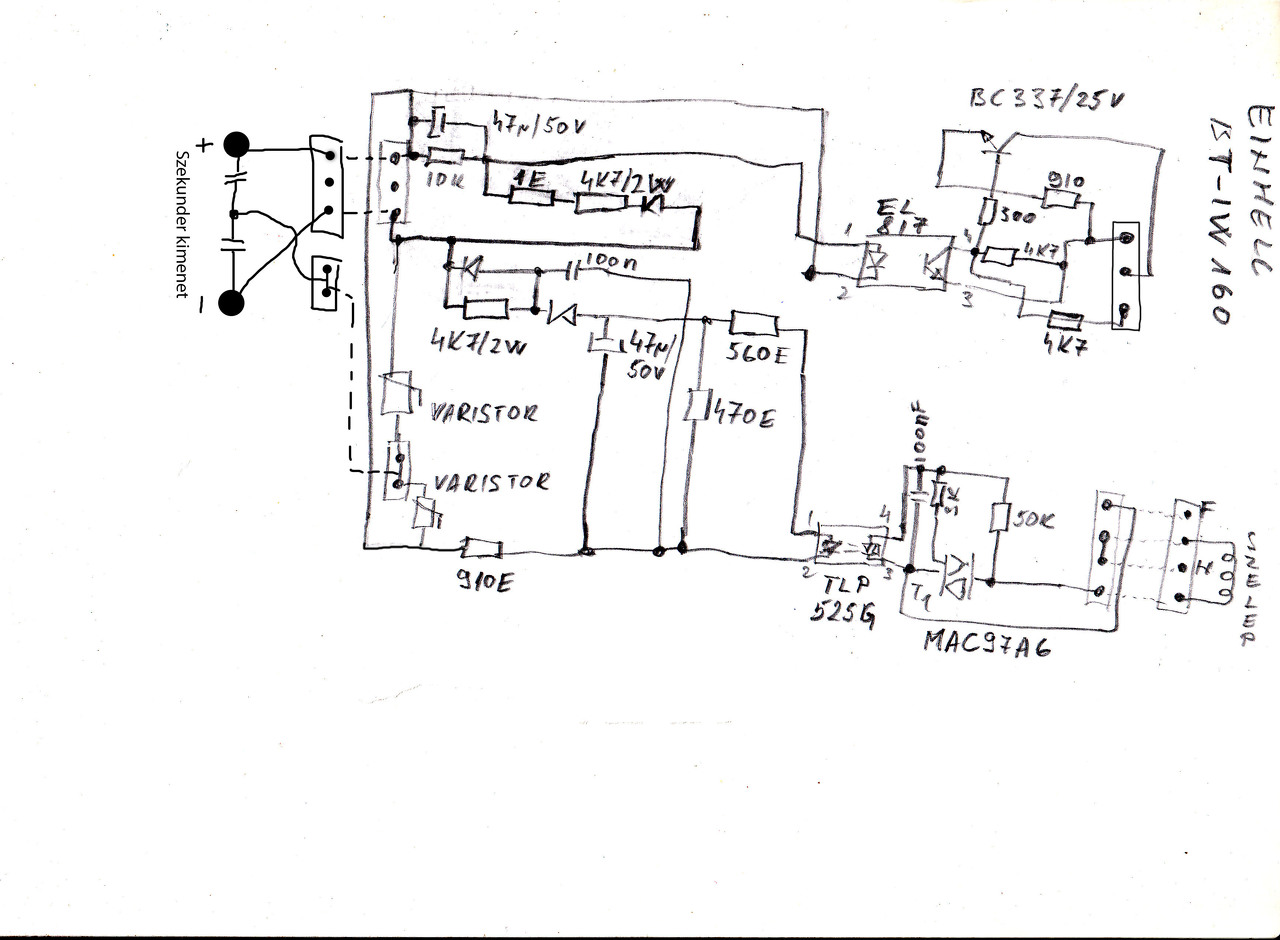 EINHELL
BT-IW 160
BC337/25V
47µ/50V
10K
1E
4K7/2W
910
300
4K7
4K7
EL
817
1
2
4
3
+
Szekunder kimenet
-
100n
4K7/2W
47µ/
50V
560E
470E
VARISTOR
VARISTOR
910E
100nF
50K
1
2
4
3
TLP
525G
T1
MAC97A6
F
H